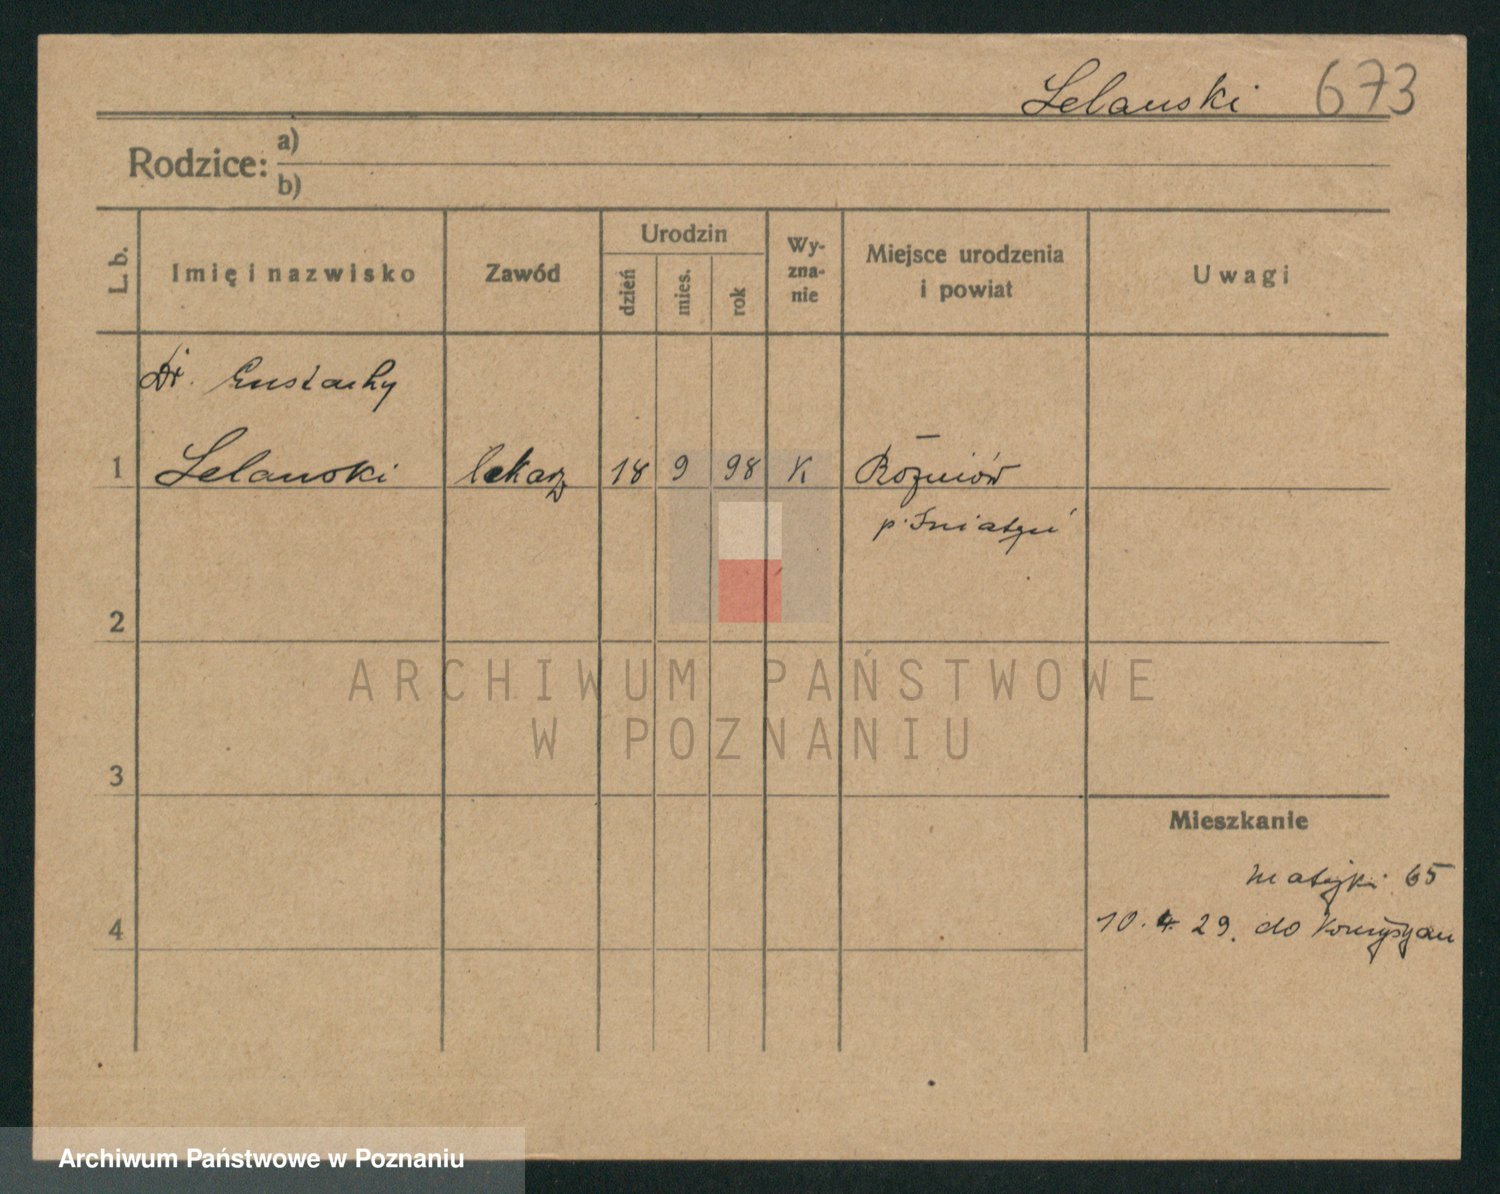 Lelanski 673
Rodzice: a)
b)
L. b. Imię i nazwisko Zawód Urodzin dzień mies. rok Wy-zna-nie Miejsce urodzenia i powiat Uwagi
Dr. Eustachy
1 Lelanski lekarz 18 9 98 K Rożniów
p. Śniatyń
2
ARCHIWUM PAŃSTWOWE
W POZNANIU
3
Mieszkanie
Matejki 65
4 10. 4. 29. do
Archiwum Państwowe w Poznaniu